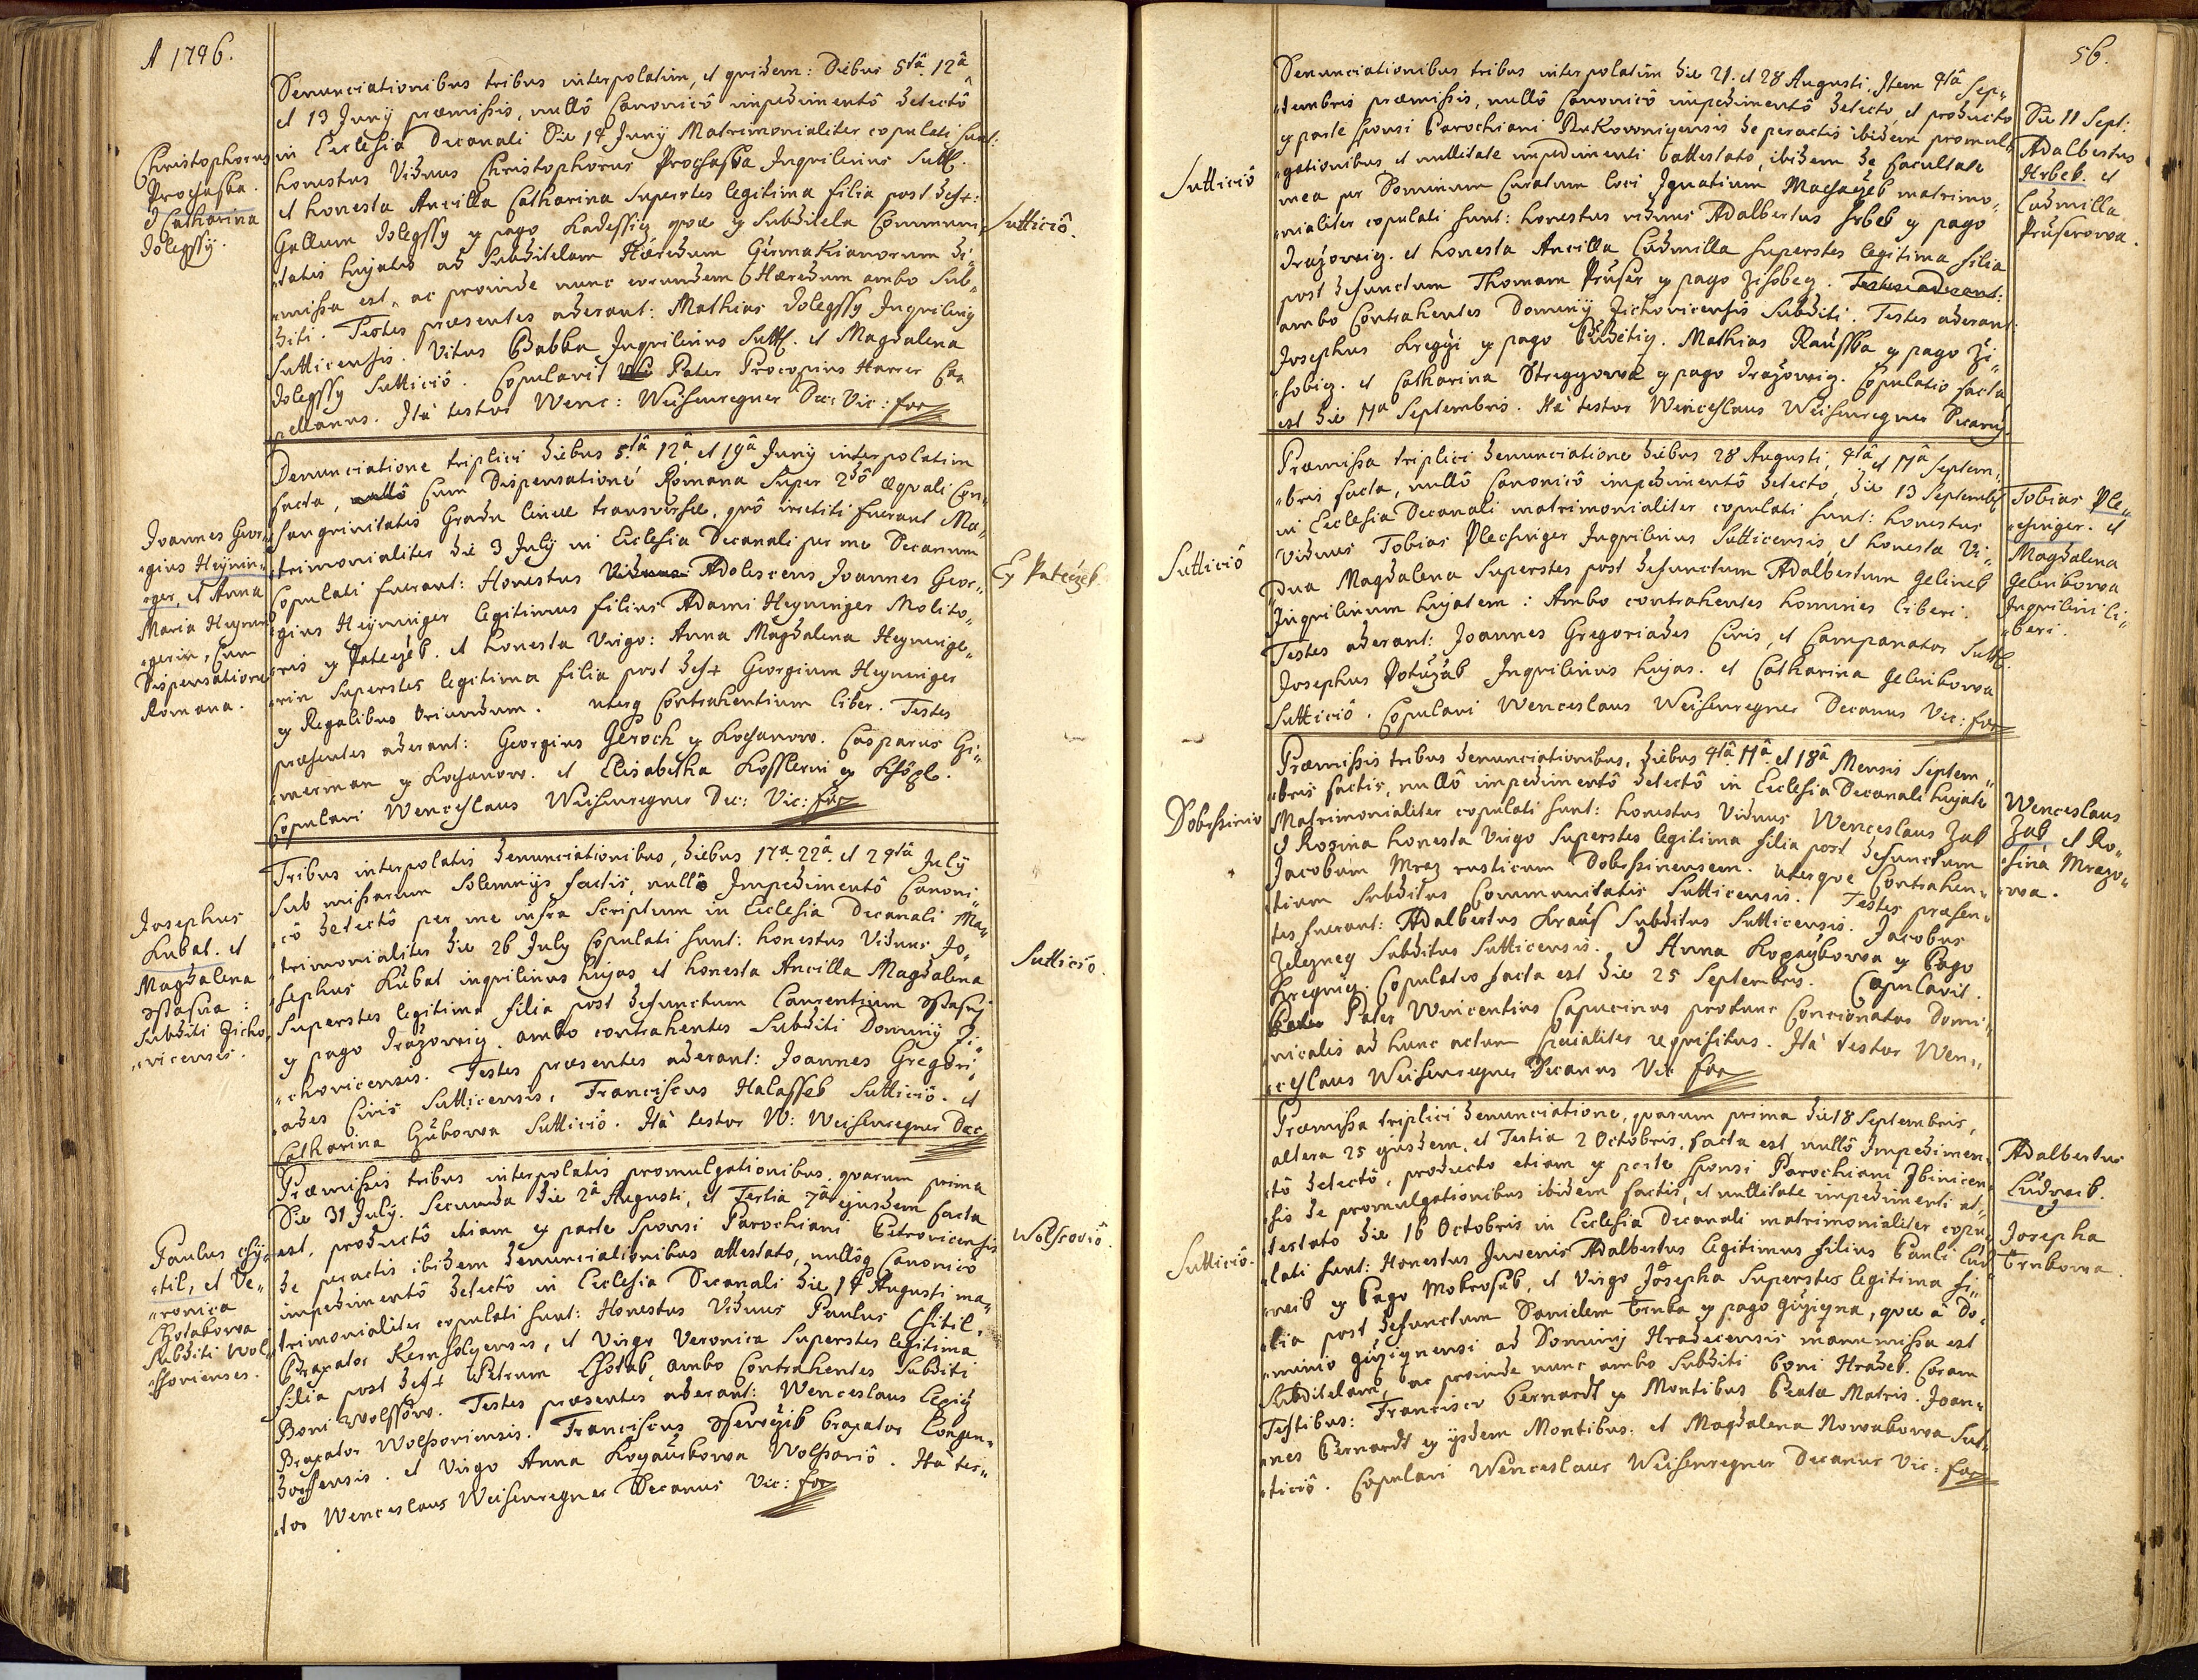 A 1746.
Denunciationibus tribus interpolatim, et quidem: Diebus 5tâ 12â
et 13 Junÿ præmissis, nullô Canonicô impedimentô detectô
in Ecclesia Decanali Die 14 Junÿ Matrimonialiter copulati sunt:
honestus Viduus Christophorus Prochaska Inquilinus Sutt.
et honesta Ancilla Catharina Superstes legitima filia post def+:
Gallum Dolegssÿ ex pago Kadessicz, quæ ex Subditela Communi„
„tatis hujatis ad Subditelam Hæredum Germakianorum di„
„missa est, ac proinde nunc eorundem Hæredum ambo Sub„
diti. Testes præsentes aderant: Mathias Dolegssÿ Inquilinq
Sutticensis. Vitus Babka Inquilinus Sutt. et Magdalena
Dolegssÿ Sutticiô. Copulavit Pater Procopius Harrer Ca„
„pellanus. Ità testor Wenc: Weisenregner Dec: Vic: for
Christophorus
Prochaska.
& Catharina
Dolegssÿ.
Sutticiô.
Denunciatione triplici diebus 5tâ 12â et 19â Junÿ interpolatim
facta, nullô Cum Dispensatione Romana Super 2dô æquali Con„
Sangvinitatis Gradu lineæ transversæ, quô irretiti fuerant Ma„
„trimonialiter die 3 Julÿ in Ecclesia Decanali per me Decanum
Copulati fuerant: Honestus Viduus Adolescens Joannes Geor„
„gius Heÿninger legitimus filius Adami Heyninger Molito„
„ris ex Pateczek. et honesta Virgo: Anna Magdalena Heyninge„
„rin Superstes legitima filia post def+ Georgium Heyninger
ex Regalibus oriundum. uterq Contrahentium liber. Testes
præsentes aderant: Georgius Geroch ex Kochanow. Casparus Gi„
„merman ex Kochanow. et Elisabetha Kosslerin ex
Copulavi Wenceslaus Weisenregner Dec: Vic: for
Joannes Geor„
„gius Heÿnin„
„ger, et Anna
Maria Heynin„
„gerin, Cum
Dispensatione
Romana.
Ex Pateczek.
Tribus interpolatis denunciationibus, diebus 17â 22â et 24tâ Julÿ
Sub missarum Solemnijs factis, nullô Impedimentô Canoni„
„cô detectô per me infra Scriptum in Ecclesia Decanali Ma„
„trimonialiter die 26 Julÿ Copulati sunt: honestus Viduus Jo„
„sephus Kubat inquilinus hujas et honesta Ancilla Magdalena
Superstes legitima filia post defunctum Laurentium
ex pago Drazowicz. ambo contrahentes Subditi Dominÿ Zi„
„chovicensis. Testes præsentes aderant: Joannes Gregori„
„ades Civis Sutticensis, Franciscus Halassek Sutticiô. et
Catharina Sutticiô. Ità testor W: Weisenregner Dec
Josephus
Kubat. et
Magdalena
Subditi Zicho„
„vicenses.
Sutticiô.
Præmissis tribus interpolatis promulgationibus, quarum prima
Die 31 Julÿ. Secunda die 2â Augusti, et Tertia 7â ejusdem facta
est, productô etiam ex parte Sponsi Parochiani Petrovicensis
de peractis ibidem denunciationibus attestato, nullôq Canonicô
impedimentô detectô in Ecclesia Decanali die 14â Augusti ma„
„trimonialiter copulati sunt: Honestus Viduus Paulus Chitil.
Braxator, et Virgo Veronica Superstes legitima
filia post def+ Petrum Chotak, ambo Contrahentes Subditi
Boni Wolssow. Testes præsentes aderant: Wenceslaus
Braxator Wolssoviensis. Franciscus braxator Langen„
„dorfensis. et Virgo Anna Wolssoviô. Ità tes„
„tor Wenceslaus Weisenregner Decanus Vic: for
Paulus Chÿ„
„til, et Ve„
„ronica
Chotakowa
Subditi Wol„
„ssovienses.
Wolssoviô.
56.
Denunciationibus tribus interpolatim die 21. et 28 Augusti, Item 4tâ Sep„
„tembris præmissis, nullô Canonicô impedimentô detecto, et producto
ex parte sponsi Parochiani de peractis ibidem promul„
„gationibus et nullitate impedimenti attestato, ibidem de facultate
mea per Dominum Curatum loci Ignatium matrimo„
„nialiter copulati sunt: honestus viduus Adalbertus Hrbek ex pago
Drazowicz. et honesta Ancilla Ludmilla superstes legitima filia
post defunctum Thomam Prüser ex pago Zihobecz. Testes aderant:
ambo Contrahentes Dominÿ Zichovicensis Subditi. Testes aderant
Josephus Kregczi ex pago Mathias ex pago Zi„
„hobicz. et Catharina ex pago Drazowicz. Copulatio facta
est die 11â Septembris. Ità testor Wenceslaus Weisenregner Decanq.
Sutticiô
Die 11 Sept:
Adalbertus
Hrbek. et
Ludmilla
Prüserowa.
Præmissa triplici denunciatione diebus 28 Augusti, 4tâ et 11â Septem„
„bris facta, nullô Canonicô impedimentô detecto, die 13 Septemb
in Ecclesia Decanali matrimonialiter copulati sunt: honestus
Viduus Tobias Plechinger Inquilinus Sutticensis, et honesta Vi„
„dua Magdalena Superstes post defunctum Adalbertum Gelinek
Inquilinum hujatem: Ambo contrahentes homines liberi.
Testes aderant: Joannes Gregoriades Civis, et Campanator Sutt.
Josephus Potuzak Inquilinus hujas. et Catharina Gelinkowa
Sutticiô. Copulavi Wenceslaus Weisenregner Decanus Vic: for
Sutticiô
Tobias Ple„
„chinger. et
Magdalena
Gelinkowa
Inquilini li„
„beri.
Præmissis tribus denunciationibus, diebus 4tâ 11â et 18â Mensis Septem„
„bris factis, nullô impedimentô detectô in Ecclesia Decanali hujate
Matrimonialiter copulati sunt: honestus Viduus Wenceslaus Zak
& Rozina honesta Virgo Superstes legitima filia post defunctum
Jacobum Mraz rusticum Dobrssinensem. uterque Contrahen„
„tium Subditus Communitatis Sutticensis. Testes præsen„
tes fuerant: Adalbertus Kraus Subditus Sutticensis. Jacobus
Zelezney Subditus Sutticensis. & Anna ex Pago
Copulatio facta est die 25 Septembris. Copulavit.
Pater Pater Wincentius Capucinus protunc Concionator Domi„
„nicalis ad hunc actum specialiter requisitus. Ità testor Wen„
„ceslaus Weisenregner Decanus Vic for
Dobrssinio
Wenceslaus
Zak et Ro„
„sina Mrazo„
„wa.
Præmissa triplici denunciatione, quarum prima die 18 Septembris,
altera 25 ejusdem, et Tertia 2 Octobris, facta est, nullô Impedimen„
„tô detectô, producto etiam ex parte sponsi Parochiani Zbinicen„
sis de promulgationibus ibidem factis, et nullitate impedimenti at„
„testato die 16 Octobris in Ecclesia Decanali matrimonialiter copu„
„lati sunt: Honestus Juvenis Adalbertus legitimus filius Pauli Lud„
„weik ex Pago Mokrosuk, et Virgo Josepha Superstes legitima fi„
„lia post defunctum Danielem Trnka ex pago, quæ à Do„
„minio ad Dominÿ Hradecensis manumissa est
Subditelam, ac proinde nunc ambo Subditi boni Hradek. Coram
Testibus: Francisco Bernardt ex Montibus Beatæ Matris. Joan„
„nes Bernardt ex ijsdem Montibus. et Magdalena Nowakowa Sut„
„ticiô. Copulavi Wenceslaus Weisenregner Decanus Vic: for
Sutticiô.
Adalbertus
Ludweik.
Josepha
Trnkowa.